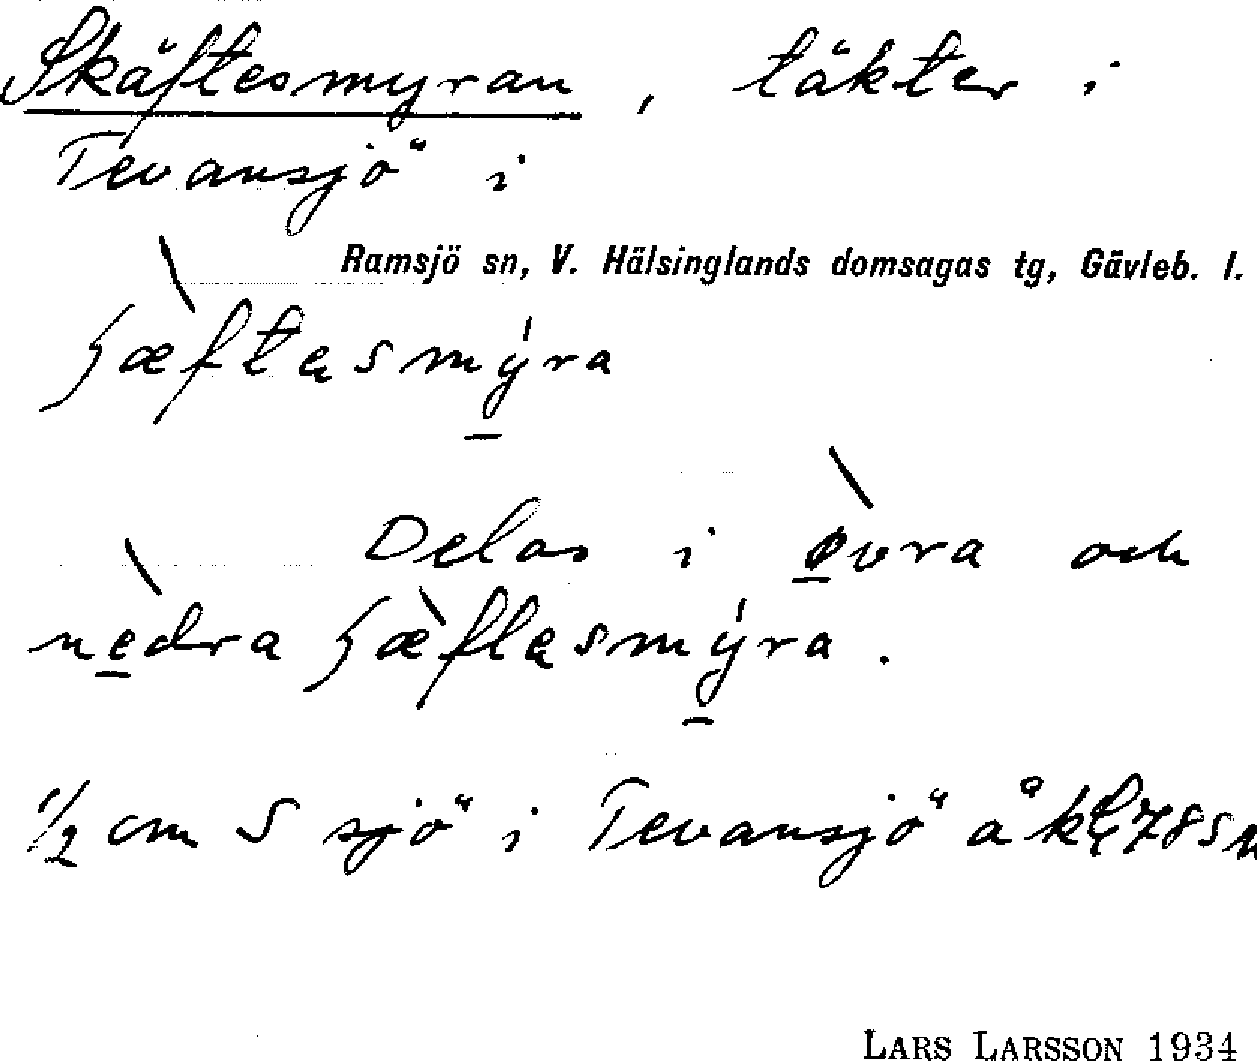 Skäftesmyran, täkter i
Tevansjö i
Ramsjö sn, V. Hälsinglands domsagas tg, Gävleb. l.
ʃæ̀ftəsmýra
Delas i ø̀vra och
nèdra ʃæ̀ftəsmýra.
1/2 cm S sjö i Tevansjö å
LARS LARSSON 1934